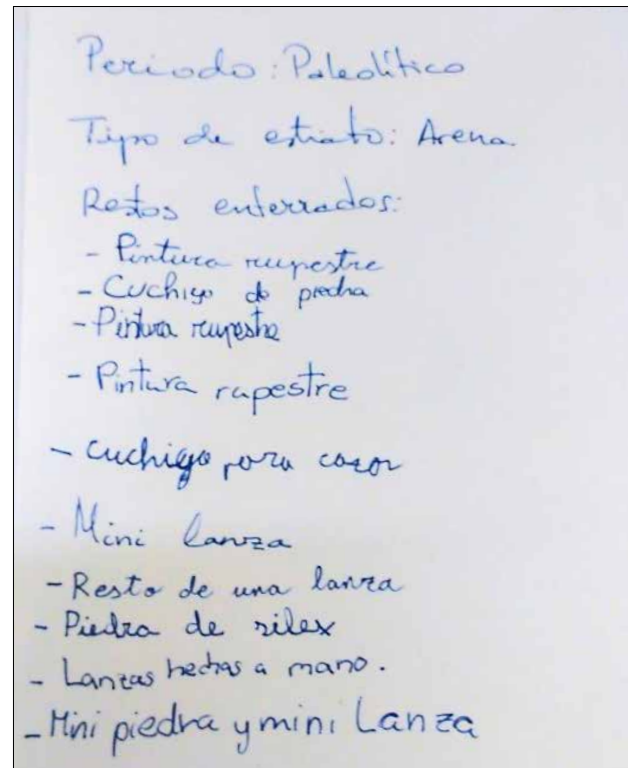 Periodo: Paleolítico
Tipo de estrato: Arena
Restos enterrados:
- Pintura rupestre
- Cuchiyo de piedra
- Pintura rupestre
- Pintura rupestre
- cuchigo para cazar
- Mini lanza
- Resto de una lanza
- Piedra de silex
- Lanzas hechas a mano.
- Mini piedra y mini Lanza